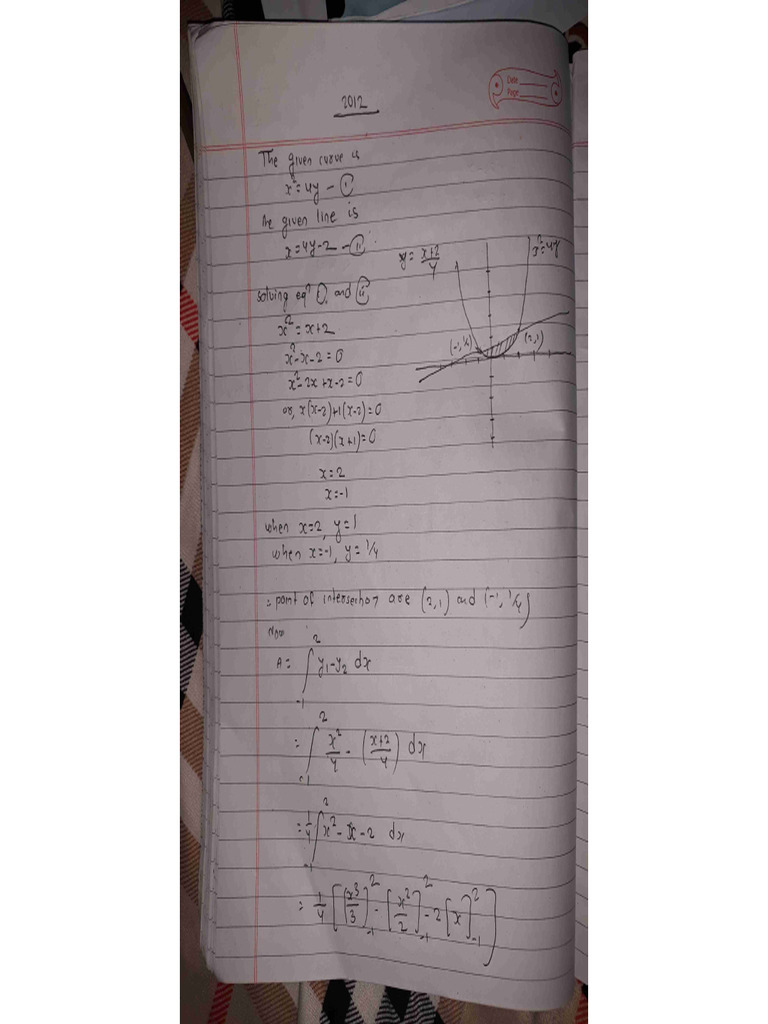 Date
Page
2012
The given curve is
x² = 4y - (i)
the given line is
x = 4y-2 - (ii)
y = x+2/4
x² = 4y
solving eqn (i) and (ii)
x² = x+2
x²-x-2=0
x²-2x+x-2=0
or, x(x-2)+1(x-2)=0
(x-2)(x+1)=0
(-1, 1/4)
(2,1)
x=2
x=-1
when x=2, y=1
when x=-1, y=1/4
∴ point of intersection are (2,1) and (-1, 1/4)
Now
A = ∫₋₁² y₁-y₂ dx
= ∫₋₁² x²/4 - (x+2/4) dx
= 1/4 ∫₋₁² x² - x - 2 dx
= 1/4 [[x³/3]₋₁² - [x²/2]₋₁² - 2[x]₋₁²]